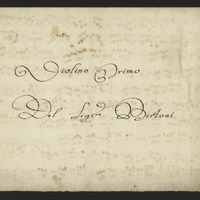 Violino Primo
Del Sigre Bertoni